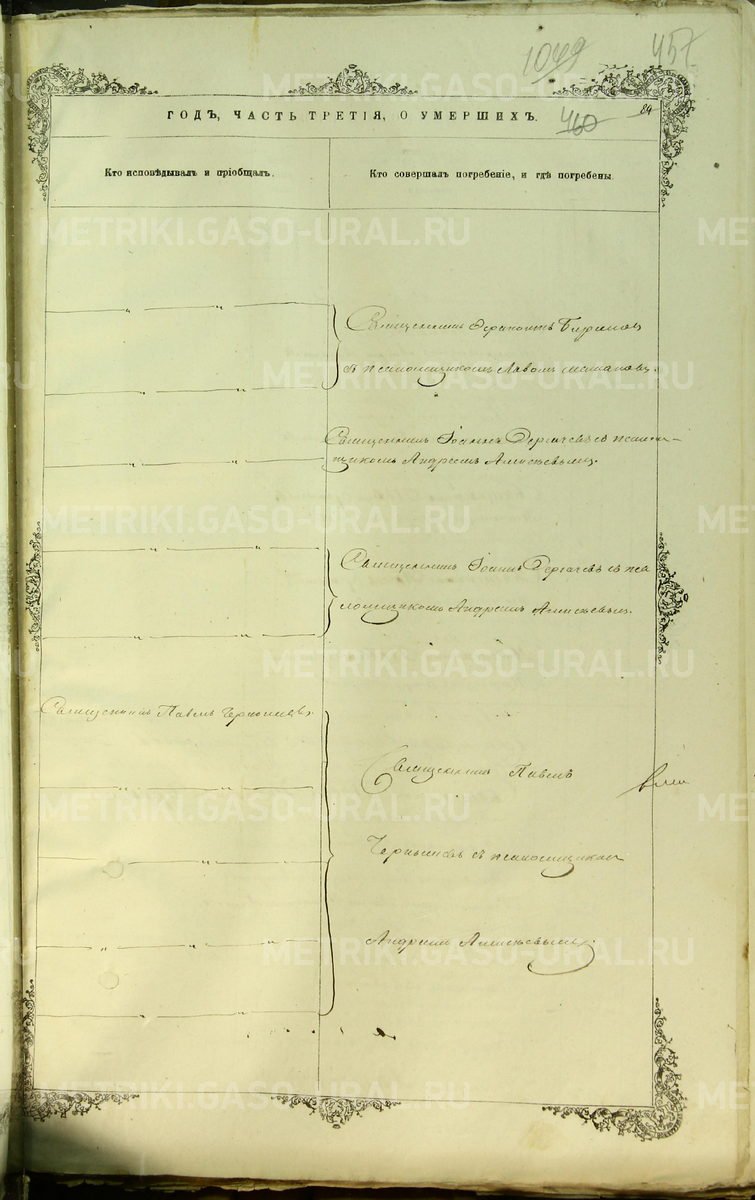 1049
457
ГОДЪ, ЧАСТЬ ТРЕТІЯ, О УМЕРШИХЪ.
460
84
Кто исповѣдывалъ и пріобщалъ.
Кто совершалъ погребеніе, и гдѣ погребены.
Священникъ
съ псаломщикомъ
Священникъ Іоаннъ Дергачевъ съ псалом-
щикомъ Андреемъ Алексѣевымъ.
Священникъ Іоаннъ Дергачевъ съ пса
ломщикомъ Андреемъ Алексѣевымъ.
Священникъ Павелъ
Священникъ Павелъ
съ псаломщикомъ
Андреемъ Алексѣевымъ.
METRIKI.GASO-URAL.RU